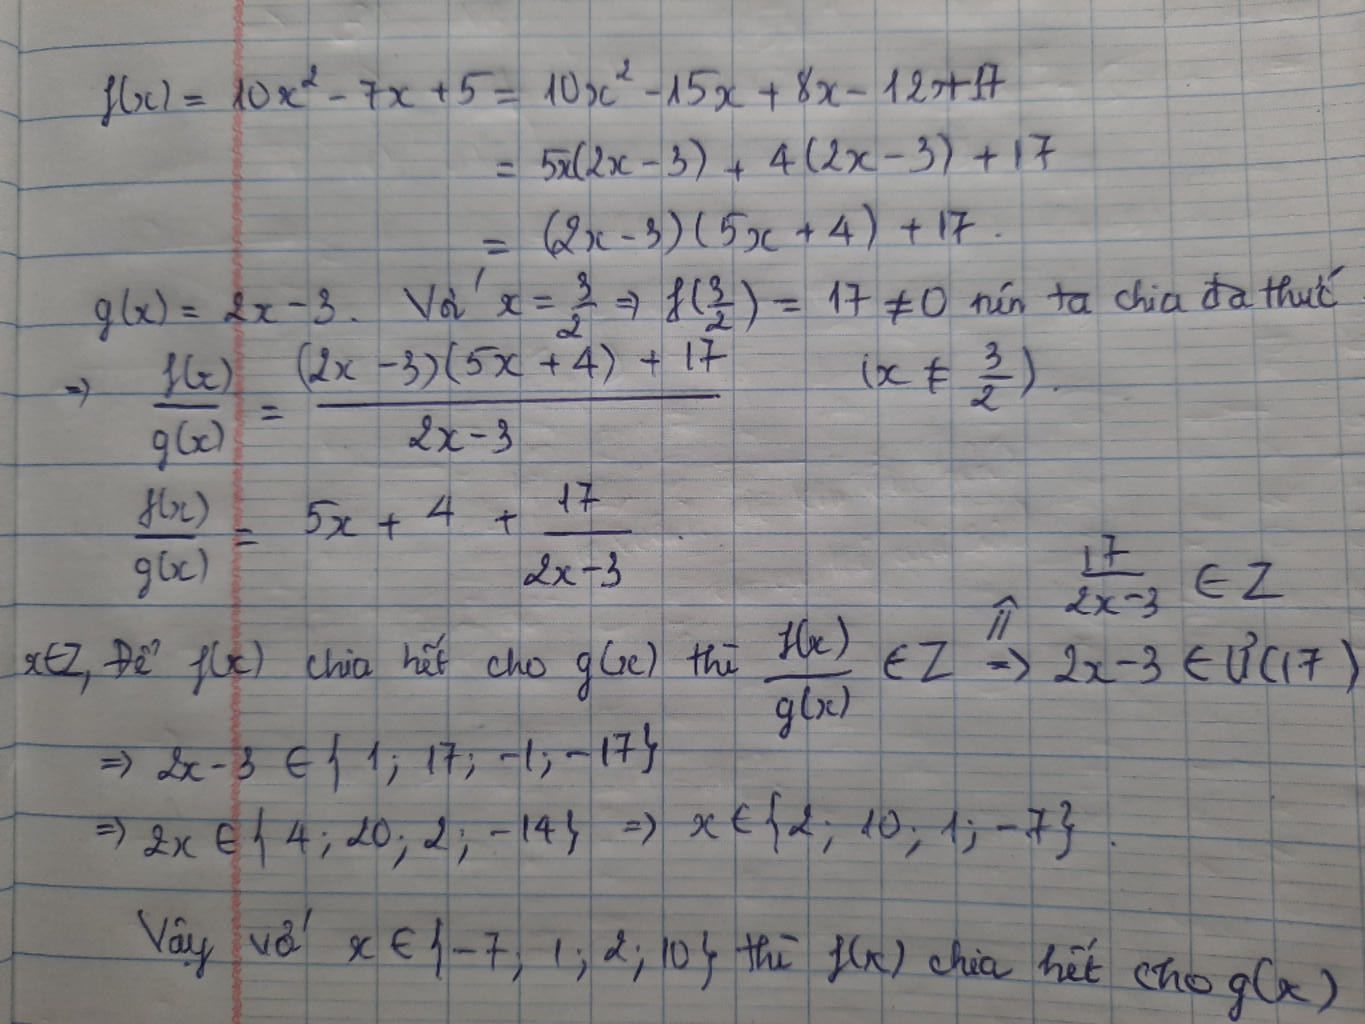 f(x) = 10x² - 7x + 5 = 10x² - 15x + 8x - 12x + 17
= 5x(2x - 3) + 4(2x - 3) + 17
= (2x - 3)(5x + 4) + 17.
g(x) = 2x - 3. Với x = 3/2 ⇒ f(3/2) = 17 ≠ 0 nên ta chia đa thức
⇒ f(x)/g(x) = ((2x - 3)(5x + 4) + 17)/(2x - 3) (x ≠ 3/2).
f(x)/g(x) = 5x + 4 + 17/(2x - 3).
17/(2x - 3) ∈ Z
x∈Z, Để f(x) chia hết cho g(x) thì f(x)/g(x) ∈ Z ⇒ 2x - 3 ∈ Ư(17)
⇒ 2x - 3 ∈ {1; 17; -1; -17}
⇒ 2x ∈ {4; 20; 2; -14} ⇒ x ∈ {2; 10; 1; -7}.
Vậy với x ∈ {-7; 1; 2; 10} thì f(x) chia hết cho g(x)